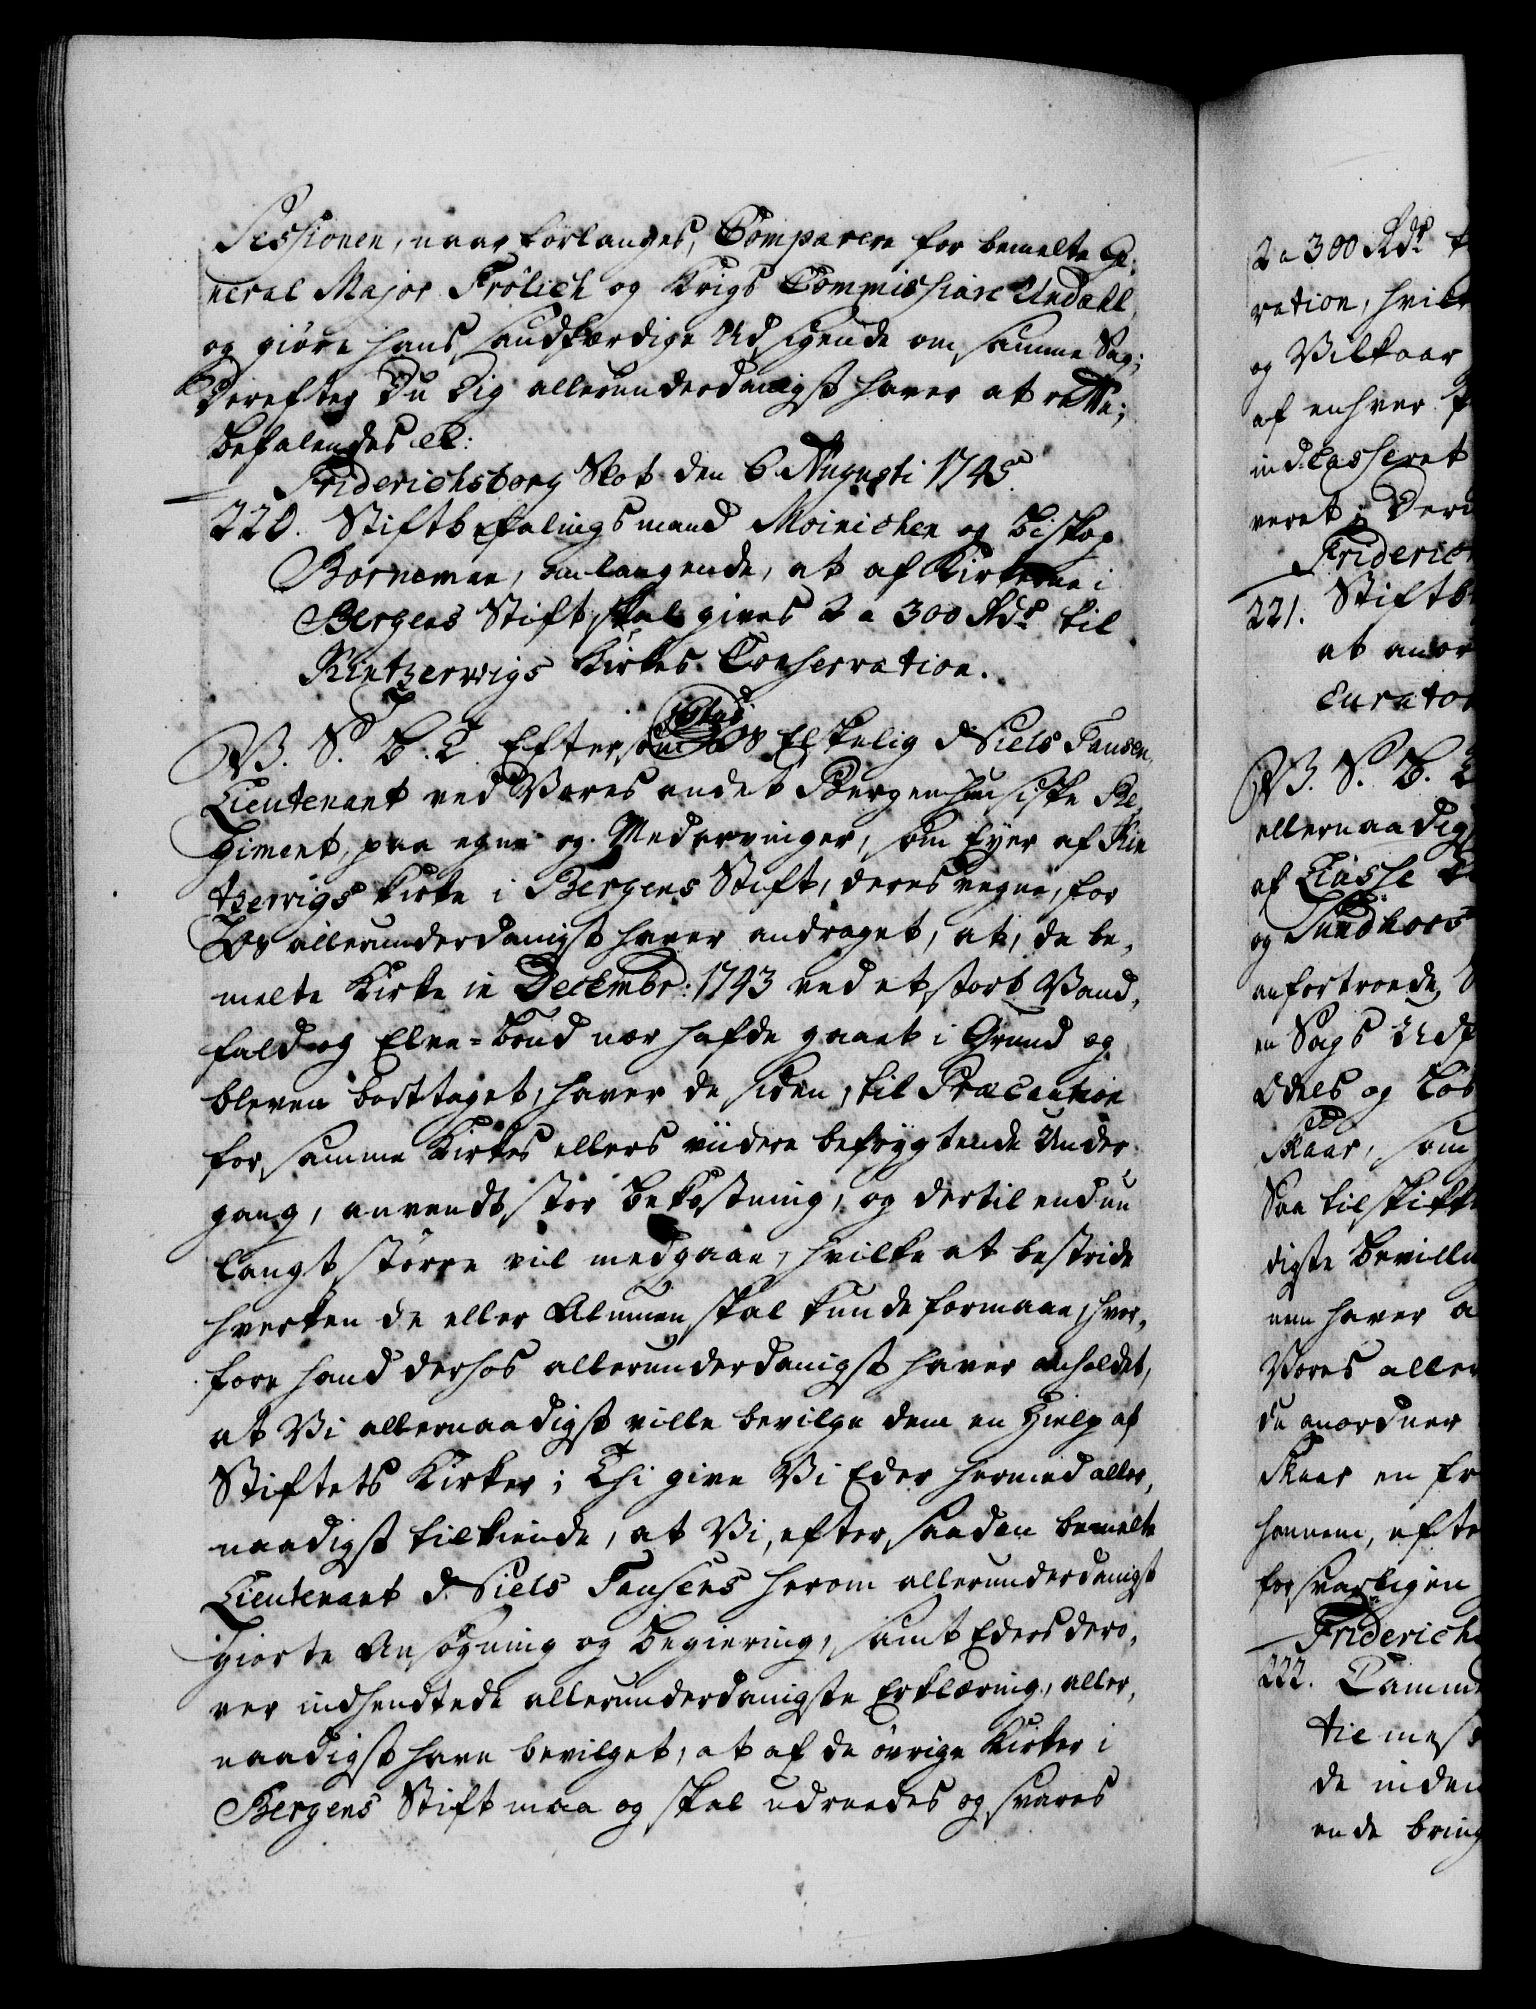 Sessionen, naar forlanges, Comparere for bemelte Ge-
neral Major Frölich og Krigs Commissiare Undahl,
og giöre hans sandfærdige Udsigende om samme Sag;
Derefter Du Dig allerunderdanigst haver at rette;
Befalendes etc:
Friderichsborg Slot den 6 Augusti 1745.
220. Stiftbefalingsmand Moinichen og Biskop
Borneman, anlangende, at af Kirkerne i
Bergens Stift skal gives 2 a 300 Rdr til
Kintzerwigs Kirkes Conservation.
V. S. B. T. Eftersom Os Elskelig Niels Jansen,
Lieutenant ved Vores andet Bergenhusiske Re-
giment, paa egne og Medarvinger, som Eyer af Kin
tzerwigs Kirke i Bergens Stift, deres vegne, for
Os allerunderdanigst haver andraget, at, da be-
melte Kirke in Decembr: 1743 ved et stort Vand-
fald og Elve-brud nær hafde gaaet i Grund og
bleven borttaget, haver de siden, til Præcaution
for samme Kirkes ellers viidere befrygtende Under-
gang, anvendt stor Bekostning, og dertil endnu
langt större vil medgaae, hvilke at bestride
hverken de eller Almuen skal kunde formaae, hvor-
fore hand derhos allerunderdanigst haver anholdet,
at Vi allernaadigst ville bevilge dem en Hielp af
Stiftets Kirker; Thi give Vi Eder hermed aller-
naadigst tilkiende, at Vi, efter saadan bemelte
Lieutenant Niels Jansens herom allerunderdanigst
giorte Ansögning og Begiering, samt Eders dero-
ver indsendtede allerunderdanigste Erklæring, aller-
naadigst have bevilget, at af de övrige Kirker i
Bergens Stift maa og skal udreedes og svares
2 a 300 Rdr
ration, hvilk
og Vilkaar
af enhver
ind Casseret
veret; Der
Friderich
221. Stiftb
at anor
Curator
V. S. B. T
allernaadig
af Classe
og Sundhors
anfortroede
en Sags Udf
Odels og Lös
Skaar, som
Saa tilskikk
digste Bevilln
nem haver a
Vores aller
du anordner
Skaar en fr
hannem, efte
forsvarligen
Friderich
222. Samme
til mes
de inden
ende bring